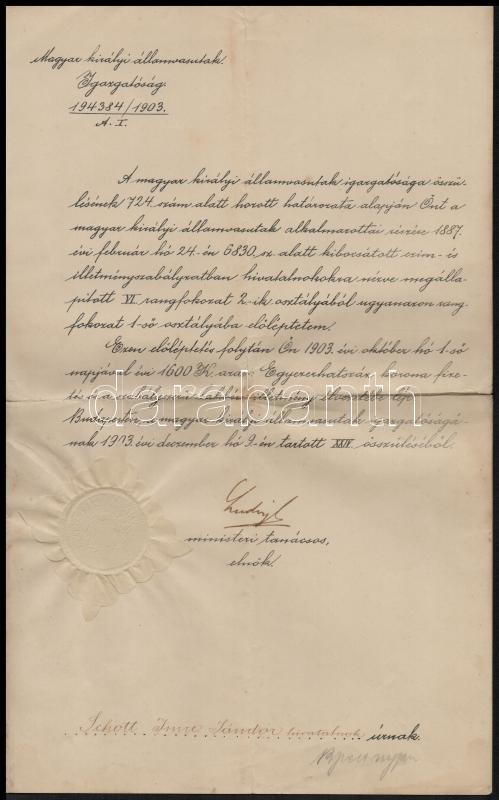 Magyar királyi államvasutak.
Igazgatóság.
194384/1903.
A. I.
A magyar királyi államvasutak igazgatósága összü-
lésének 724. szám alatt hozott határozata alapján Önt a
magyar királyi államvasutak alkalmazottai részére 1887.
évi február hó 24.-én 6830. sz. alatt kibocsátott czim- és
illetményszabályzatban hivatalnokokra nézve megálla-
pitott VI rangfokozat 2-ik osztályából ugyanazon rang-
fokozat 1-ső osztályába előléptetem.
Ezen előléptetés folytán Ön 1903. évi október hó 1-ső
napjától évi 1600 K. azaz Egyezerhatszáz korona fize-
tés és a szabályszerű lakbér élvezetébe lép.
Budapesten, a magyar királyi államvasutak igazgatóságá-
nak 1903. évi deczember hó 9.-én tartott összüléséből.
darabanth
Ludvigh
ministeri tanácsos,
elnök.
Schott Imre Sándor hivatalnok úrnak.